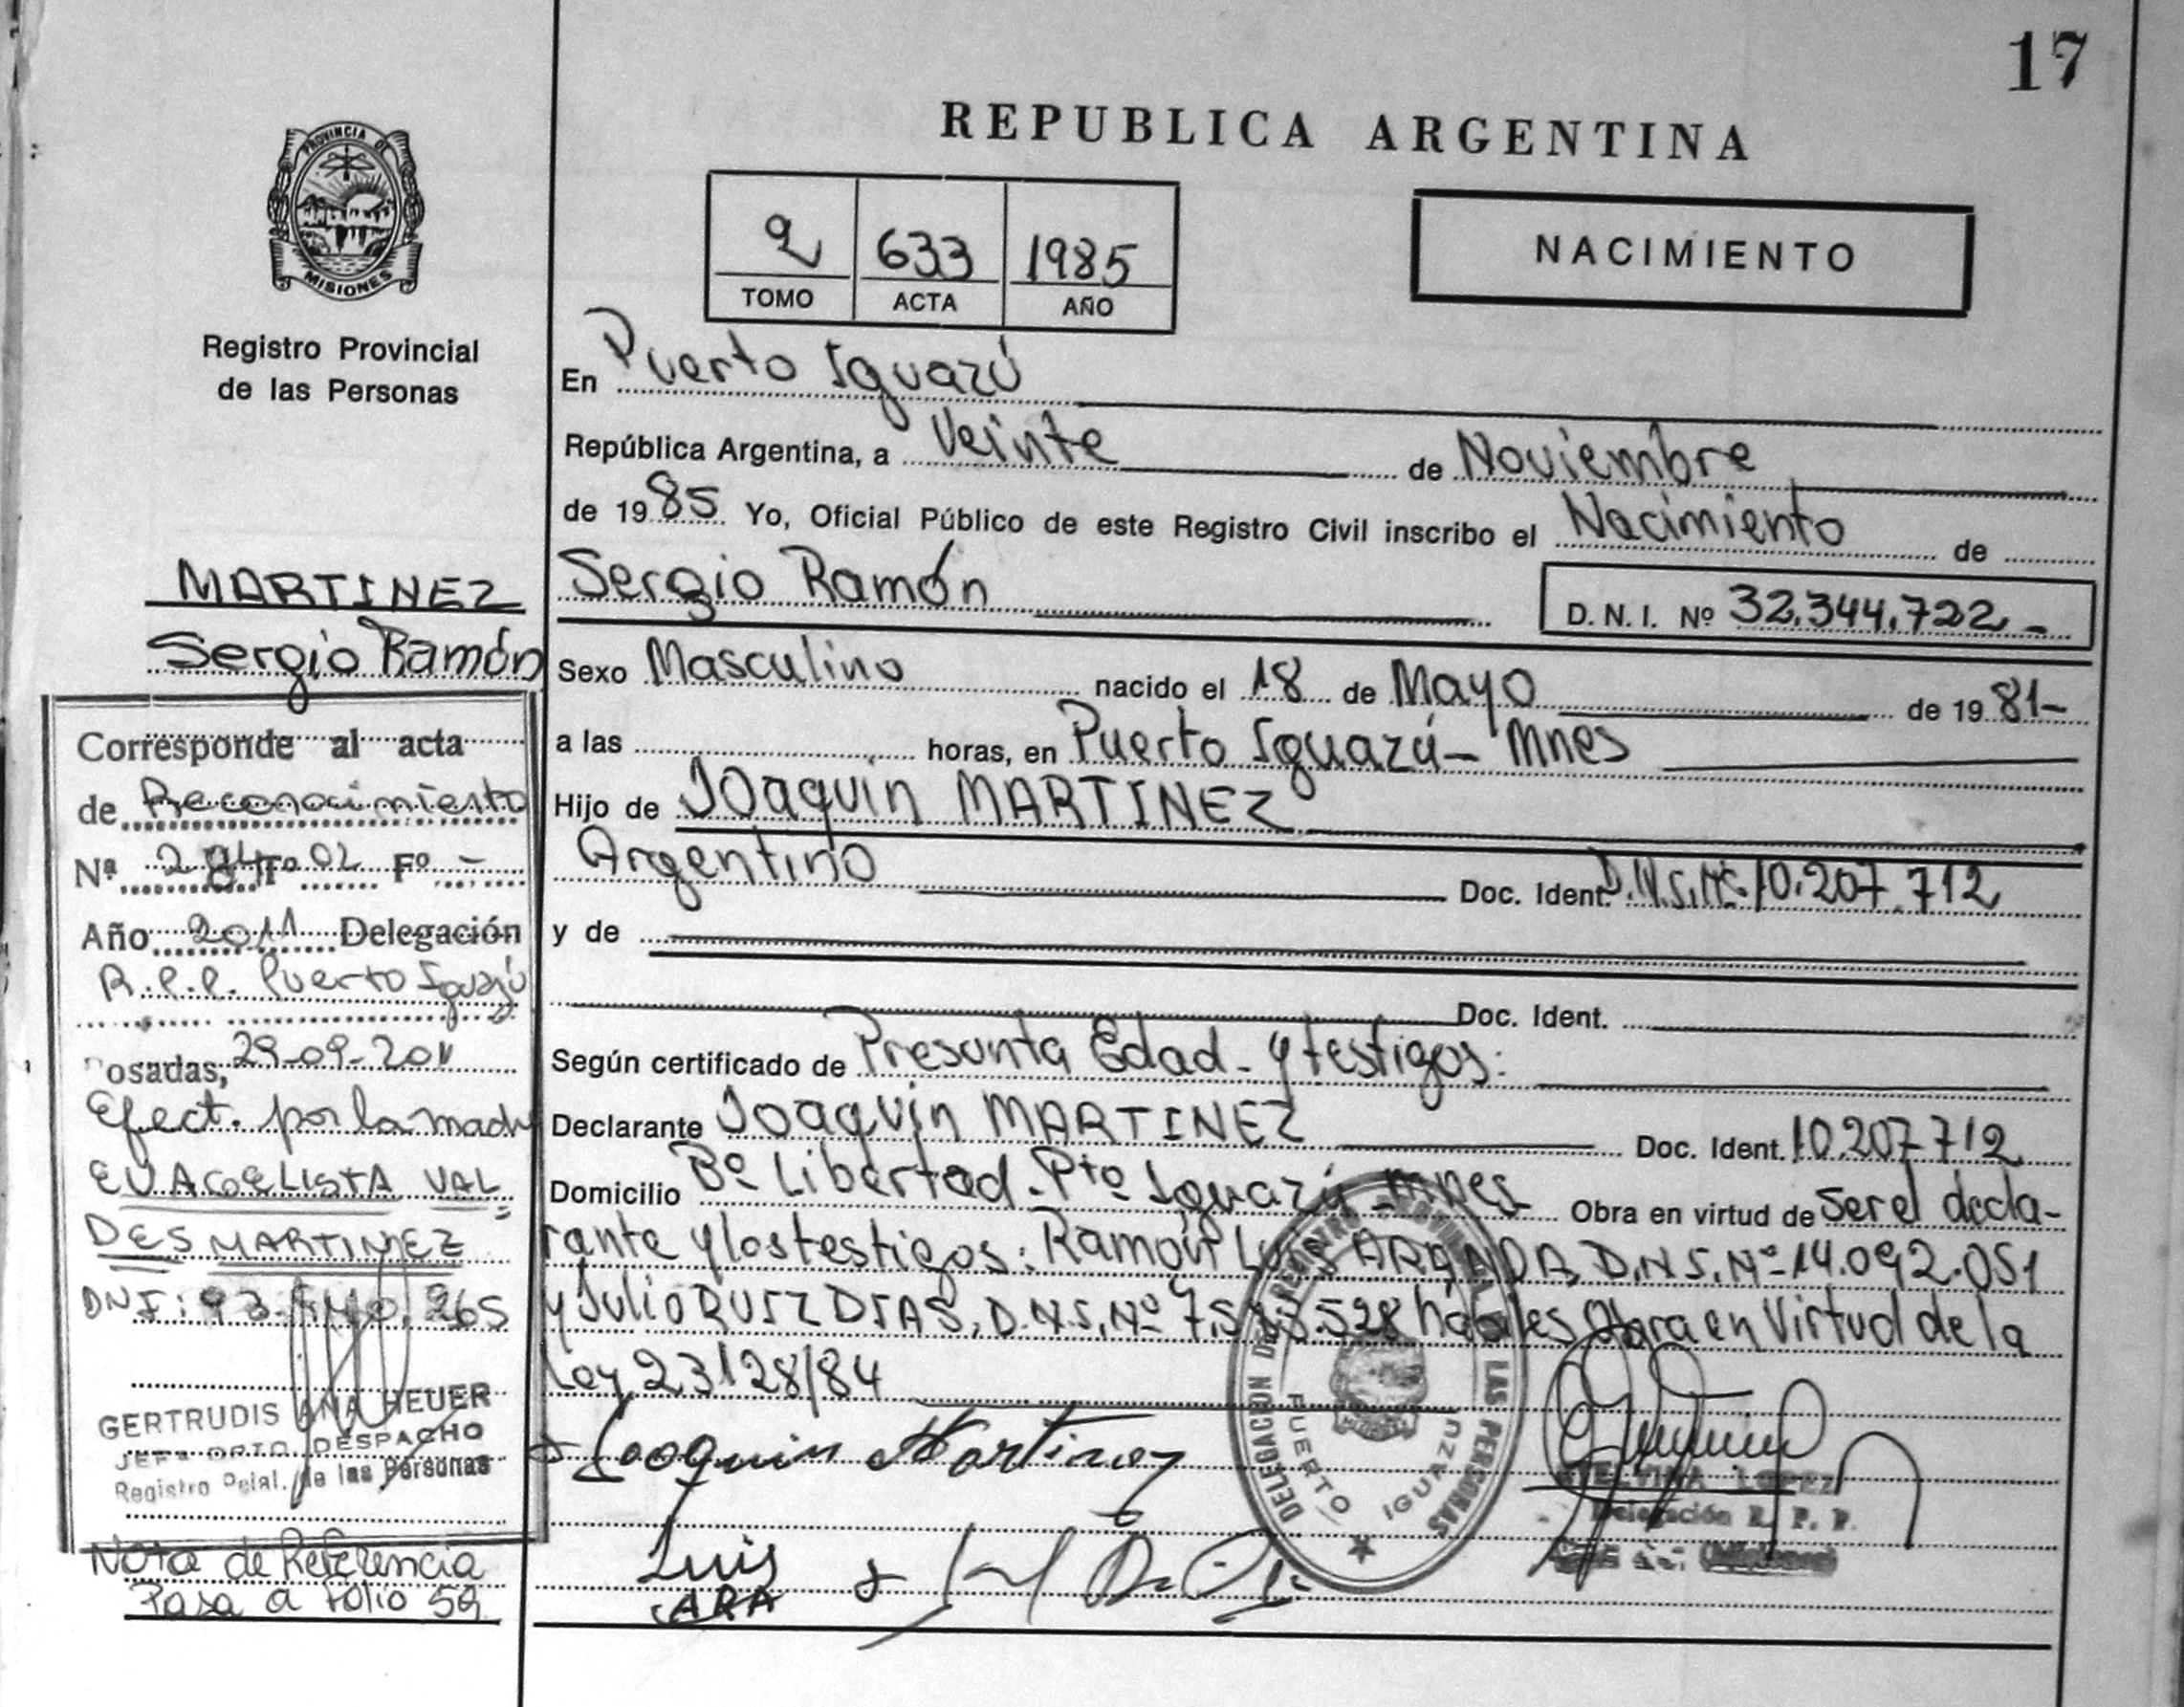 17
REPUBLICA ARGENTINA
PROVINCIA DE
MISIONES
Registro Provincial
de las Personas
2 633 1985
TOMO ACTA AÑO
NACIMIENTO
En Puerto Iguazú
República Argentina, a Veinte de Noviembre
de 1985 Yo, Oficial Público de este Registro Civil inscribo el Nacimiento de
Sergio Ramón D. N. I. Nº 32.344.722.-
Sexo Masculino nacido el 18 de Mayo de 1981-
a las horas, en Puerto Iguazú- Mnes
Hijo de Joaquín MARTINEZ
Argentino Doc. Ident. D.N.I.Nº 10.207.712
y de
Doc. Ident.
Según certificado de Presunta Edad - y testigos:
Declarante Joaquín MARTINEZ Doc. Ident. 10.207.712
Domicilio Bº Libertad - Ptº Iguazú mnes Obra en virtud de Ser el decla-
rante y los testigos: Ramón Luis ARANDA, D.N.I. Nº 14.092.051
y Julio RUIZ DIAS, D.N.I. Nº hábiles Obra en Virtud de la
Ley 23128/84
Joaquin Martinez
Luis
ARA
DELEGACION DEL REGISTRO PROVINCIAL DE LAS PERSONAS
PUERTO IGUAZU
LOPEZ
Delegación R. P. P.
(Misiones)
MARTINEZ
Sergio Ramón
Corresponde al acta
de Reconocimiento
Nº Tº 02 Fº -
Año 2011 Delegación
R.P.P. Puerto Iguazú
Posadas, 29-09-2011
Efect. por la madre
EVAGELISTA VAL
DES MARTINEZ
DNI: 93. 265
GERTRUDIS ANA HEUER
JEFA DPTO. DESPACHO
Registro Pcial. de las Personas
Nota de Referencia
Pasa a Folio 59